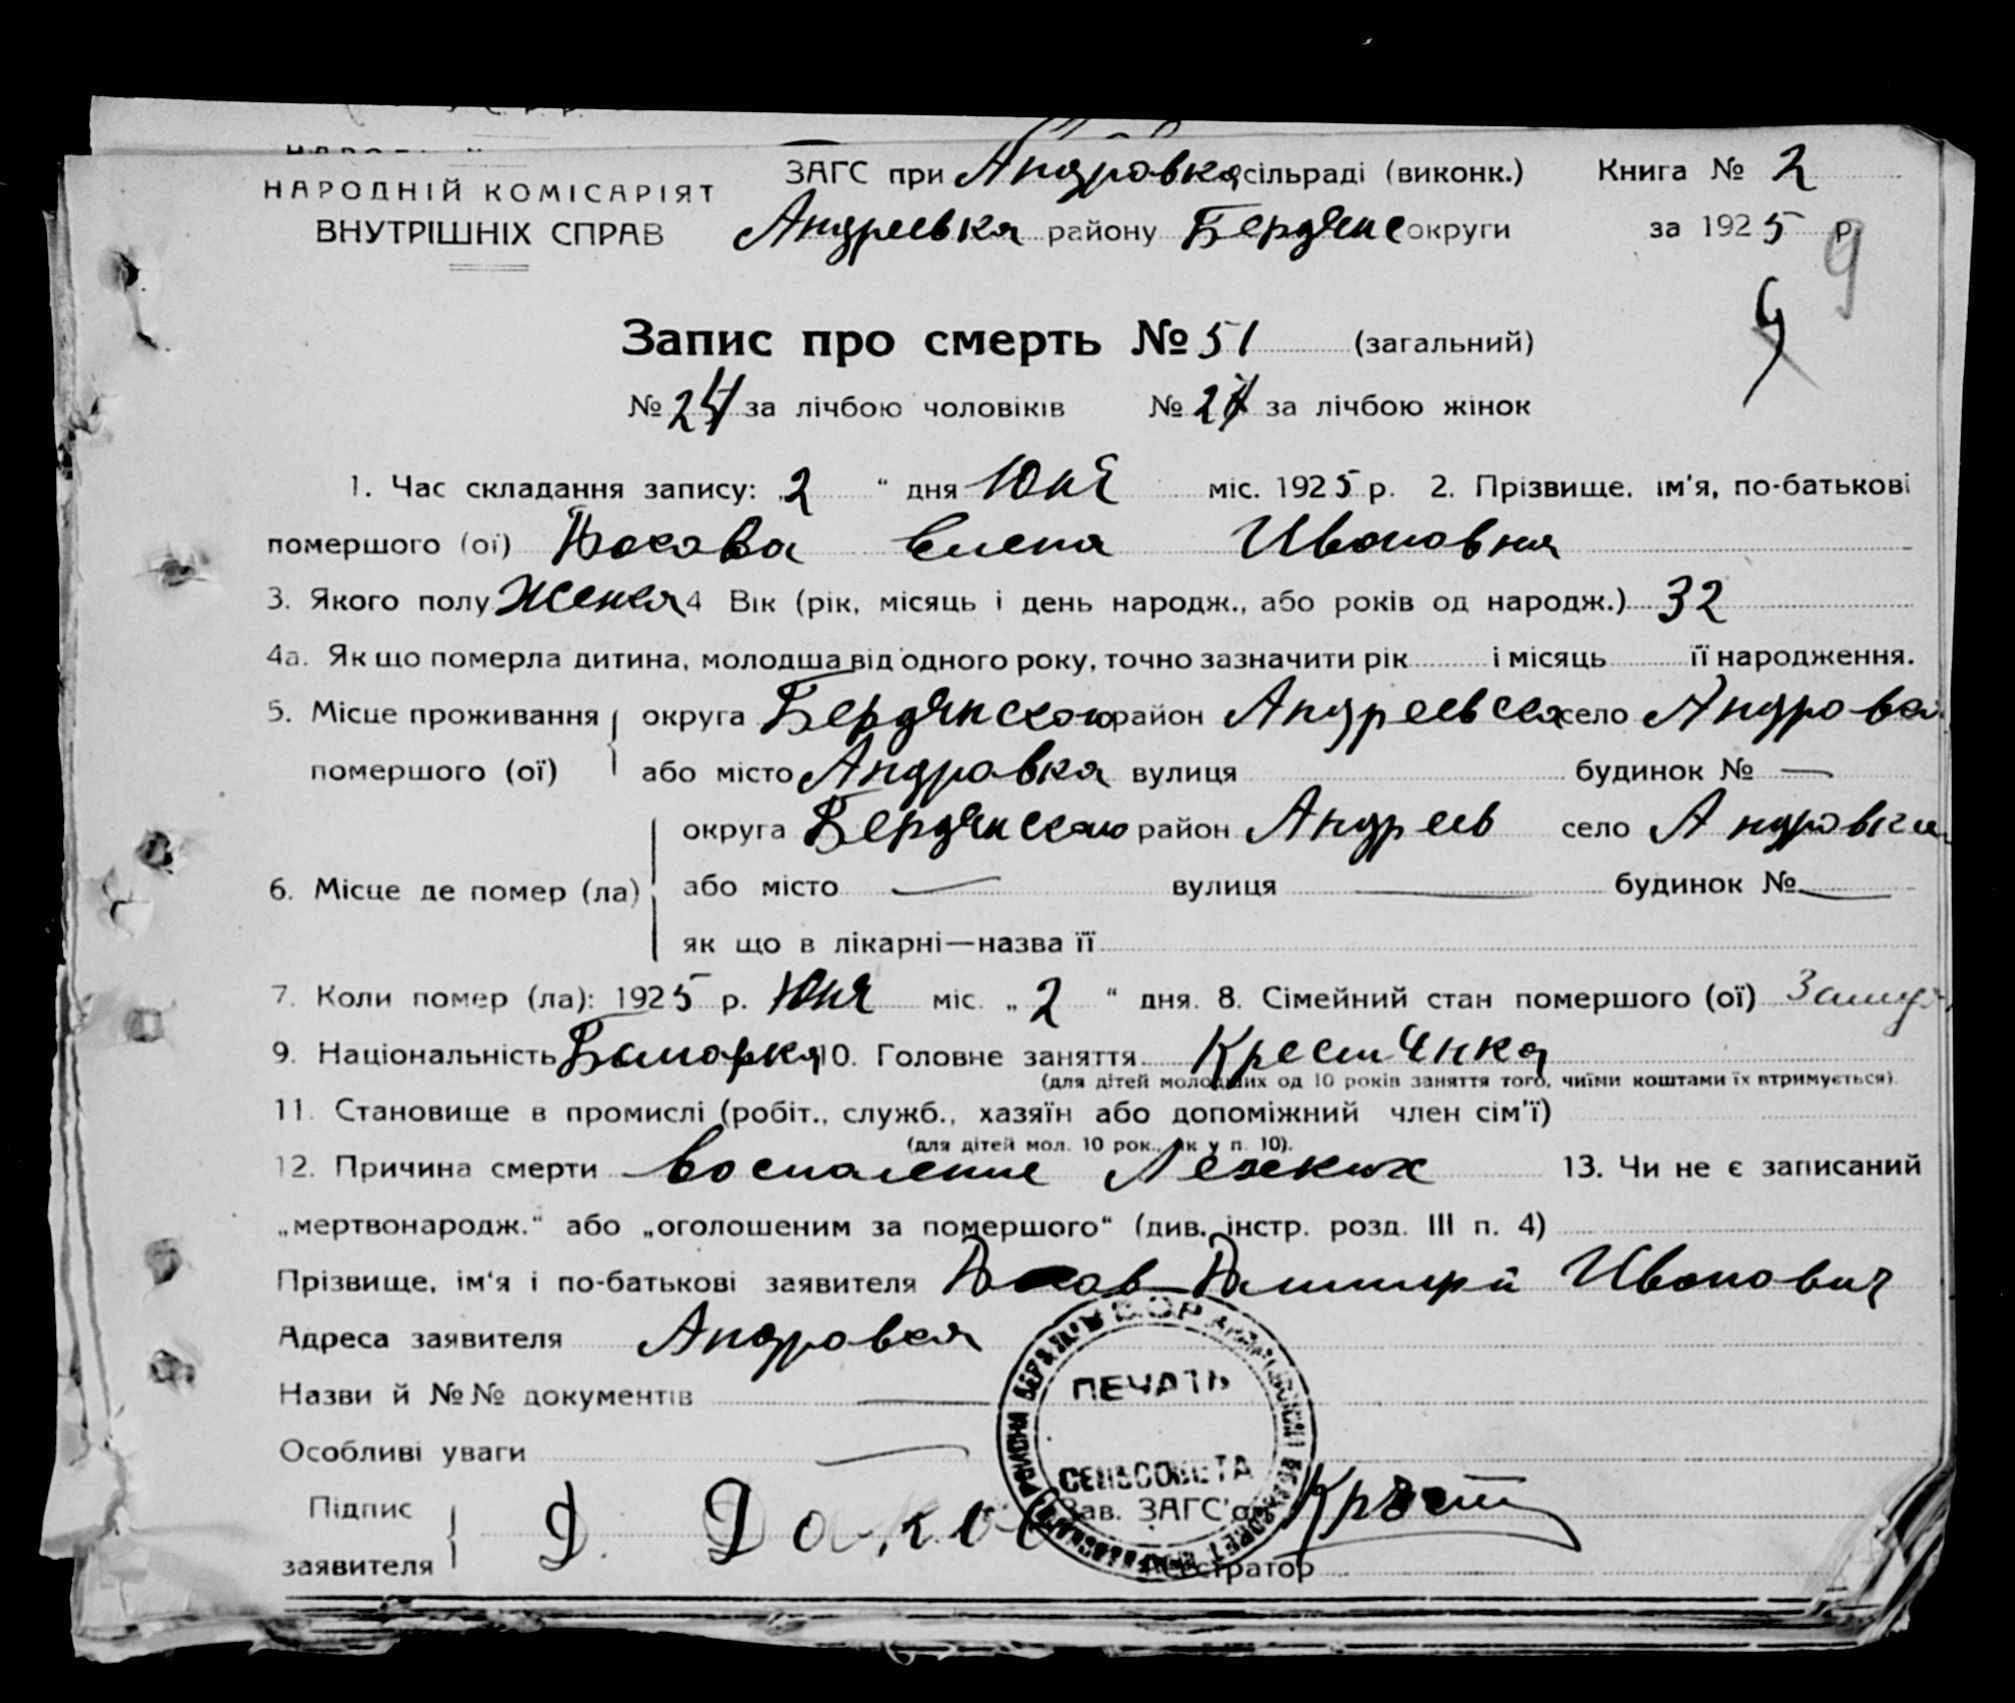 НАРОДНІЙ КОМІСАРІЯТ
ВНУТРІШНІХ СПРАВ
ЗАГС при Андровка сільраді (виконк.) Книга № 2
Андреевка району Бердянс округи за 1925 р. 9
Запис про смерть № 51 (загальний)
№ 24 за лічбою чоловіків № 27 за лічбою жінок
1. Час складання запису: „2“ дня Юня міс. 1925 р. 2. Прізвище, ім'я, по-батькові
помершого (ої) Докова Елена Ивановна
3. Якого полу Женка 4 Вік (рік, місяць і день народж., або років од народж.) 32
4а. Якщо померла дитина, молодша від одного року, точно зазначити рік і місяць її народження.
5. Місце проживання округа Бердянского район Андреевска село Андровка
помершого (ої) або місто Андровка вулиця будинок № —
округа Бердянского район Андреев село Андровки
6. Місце де помер (ла) або місто — вулиця — будинок № —
як що в лікарні—назва її
7. Коли помер (ла): 1925 р. Юня міс. „2“ дня. 8. Сімейний стан помершого (ої) Замуж
9. Національність Болгарка 10. Головне заняття Крестянка
(для дітей молодших од 10 років заняття того, чиїми коштами їх втримується).
11. Становище в промислі (робіт., служб., хазяїн або допоміжний член сім'ї)
(для дітей мол. 10 рок., як у п. 10).
12. Причина смерти воспаление Легких 13. Чи не є записаний
„мертвонародж.“ або „оголошеним за помершого“ (див. інстр. розд. III п. 4)
Прізвище, ім'я і по-батькові заявителя Доков Дмитрий Иванович
Адреса заявителя Андровка
Назви й №№ документів —
Особливі уваги —
ПЕЧАТЬ
СЕЛЬСОВЕТА
Підпис
заявителя Д. Доков
Зав. ЗАГС'ом
Реєстратор